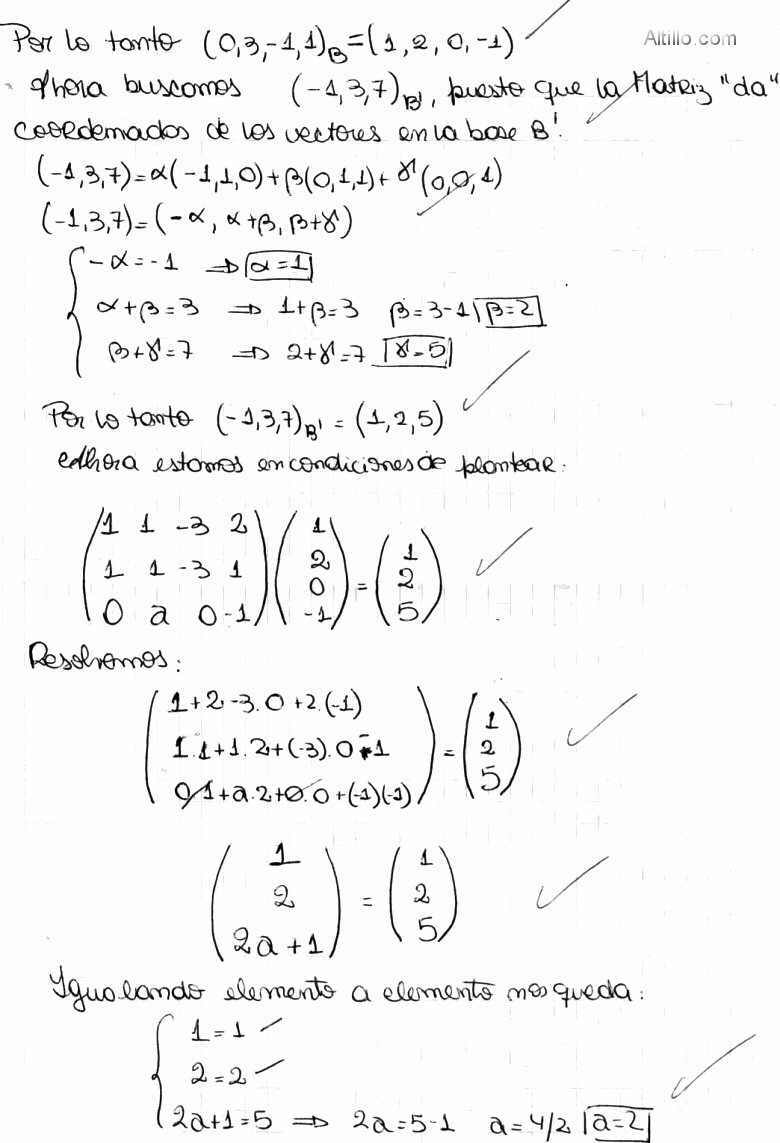 Por lo tanto (0,3,-1,1)B=(1,2,0,-1)
Altillo.com
Ahora buscamos (-1,3,7)B', puesto que la Matriz "da"
coordenadas de los vectores en la base B'.
(-1,3,7)=α(-1,1,0)+β(0,1,1)+γ(0,0,1)
(-1,3,7)=(-α, α+β, β+γ)
-α=-1 ⇒ α=1
α+β=3 ⇒ 1+β=3 β=3-1 β=2
β+γ=7 ⇒ 2+γ=7 γ=5
Por lo tanto (-1,3,7)B' = (1,2,5)
Ahora estamos en condiciones de plantear:
1 1 -3 2 1 1
1 1 -3 1 2 2
0 a 0 -1 0 = 5
-1
Resolvemos:
1+2-3.0+2.(-1) 1
1.1+1.2+(-3).0-1 = 2
0.1+a.2+0.0+(-1)(-1) 5
1 1
2 = 2
2a+1 5
Igualando elemento a elemento nos queda:
1=1
2=2
2a+1=5 ⇒ 2a=5-1 a=4/2 a=2